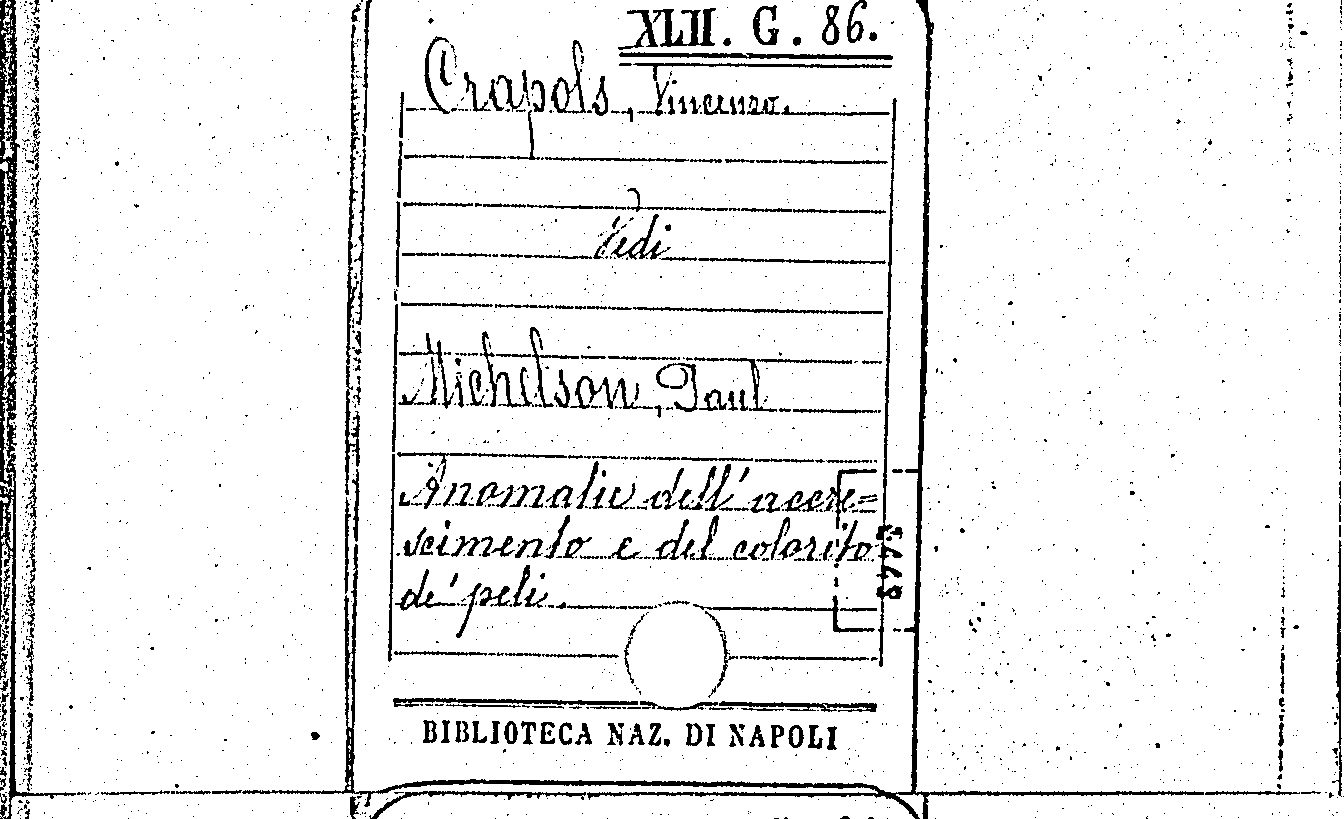 XLII. G. 86.
Crapols, Vincenzo.
Vedi
Michelson, Paul
Anomalie dell'accre=
scimento e del colorito
de' peli.
BIBLIOTECA NAZ. DI NAPOLI